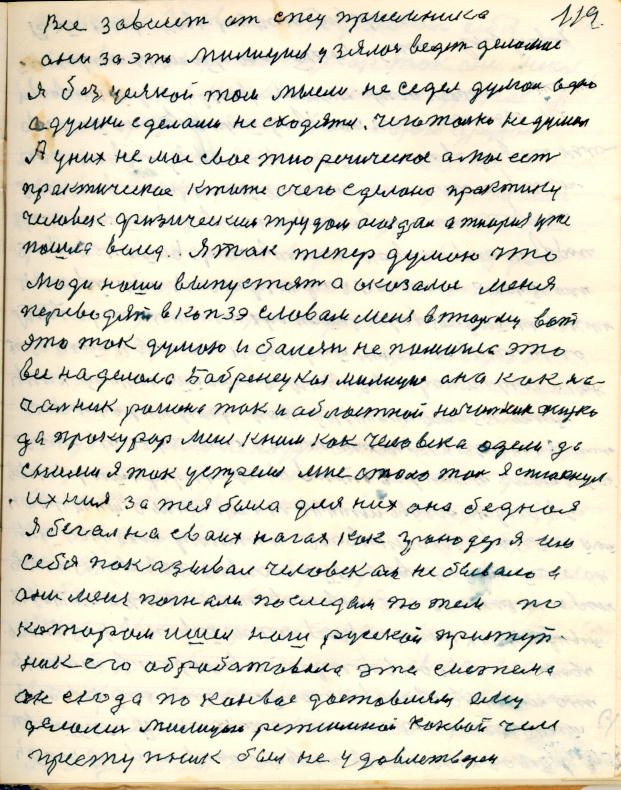 Все зависит от спец приемника 119.
они за это милиция узялся ведят деломие
Я без усякой том мысли не седел думал одно
а думки сделами не сходяти. Чего только не думал
А у них не мое свое тиоретическое а мое ест
практическое к тиже счего сделано практику
человек физическим трудом создан а тиория уже
пошла вслед. Я так тепер думаю что
люди наши выпустят а оказалос меня
переводят в кпзэ словам меня втюрму вот
это так думаю и балели не помогла это
все наделала Бобренецкая милиция она как на-
чалник ромена так и областной началник
да прокурор мене кним как человека одели да
сними я так устрелся мне стало так я столкнул
их ния затея была для них она бедная
Я бегал на сваих нагах как
себя показывал человеком не бывало а
они меня погнали последам по тем по
котором ишел наш русской приступ-
ник его обработовала эта система
он сюда по конвое доставляли ему
делалась милиция режимной конвой чем
преступник был не удовлетворен